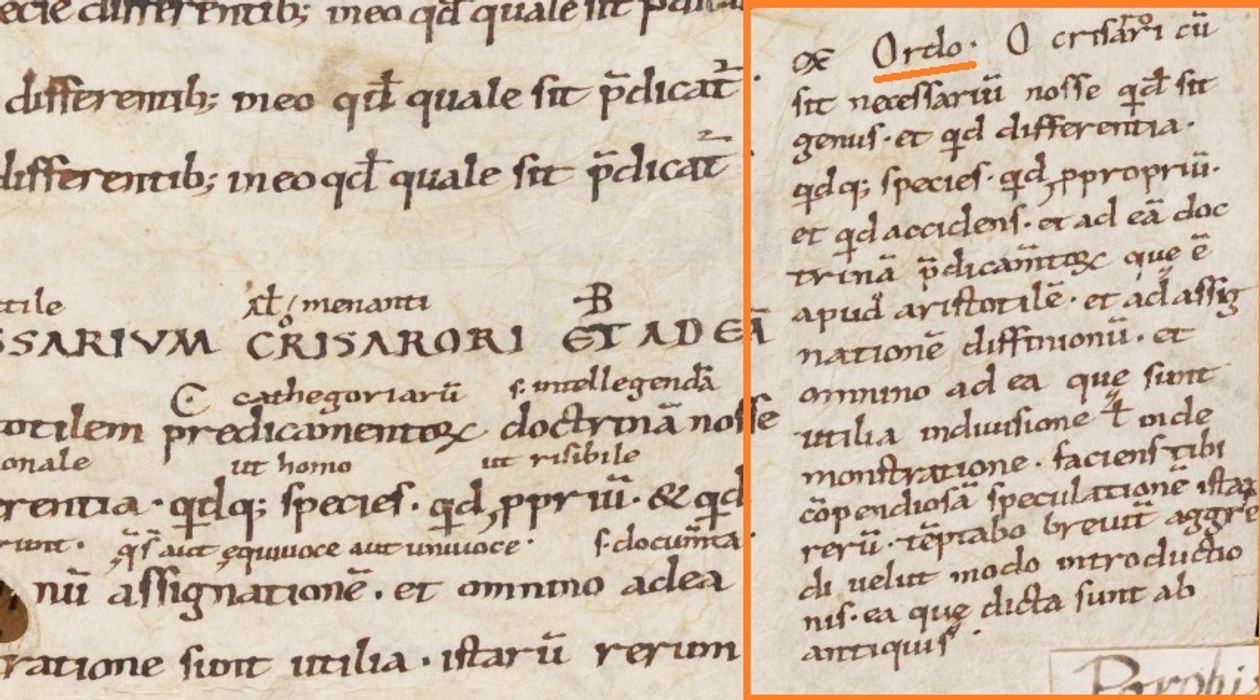 ecie differentib; ineo qđ quale sit p̄dicat
differentib; ineo qđ quale sit p̄dicat̄
differentib; ineo qđ quale sit p̄dicat̄
tile menanti B
SSARIVM CRISARORI ET AD EĀ
C cathegoriarū s. intellegendā
totilem predicamentoꝝ doctrinā nosse
onale ut homo ut risibile
rentia · qdq; species · qd ꝓpriū · & qd
runt · aut equivoce aut univoce · s. documta
nū assignationē · et omnino adea
ratione sunt utilia · istarū rerum
Ordo · O crisarori cū
sit necessariū nosse qđ sit
genus · et qd differentia ·
qdq; species · qd ppropriū ·
et qd accidens · et ad eā doc
trinā p̄dicam̄toꝝ que ē
apud aristotilē · et ad assig
nationē diffinionū · et
omnino ad ea quę sunt
utilia indivisione ƚ inde
monstratione · faciens tibi
cōpendiosā speculationē istaꝝ
rerū · tēptabo brevit̄ aggre
di velut modo introductio
nis · ea quę dicta sunt ab
antiquis ·